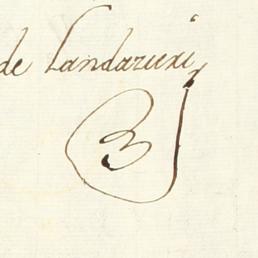 de Landazuri